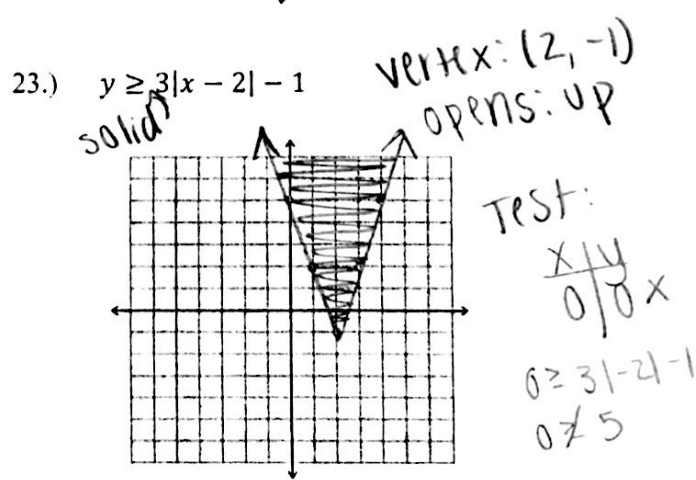 23.) y ≥ 3|x − 2| − 1
solid
vertex: (2, -1)
opens: up
Test:
x | y
0 | 0 x
0 ≥ 3|-2| -1
0 ≱ 5